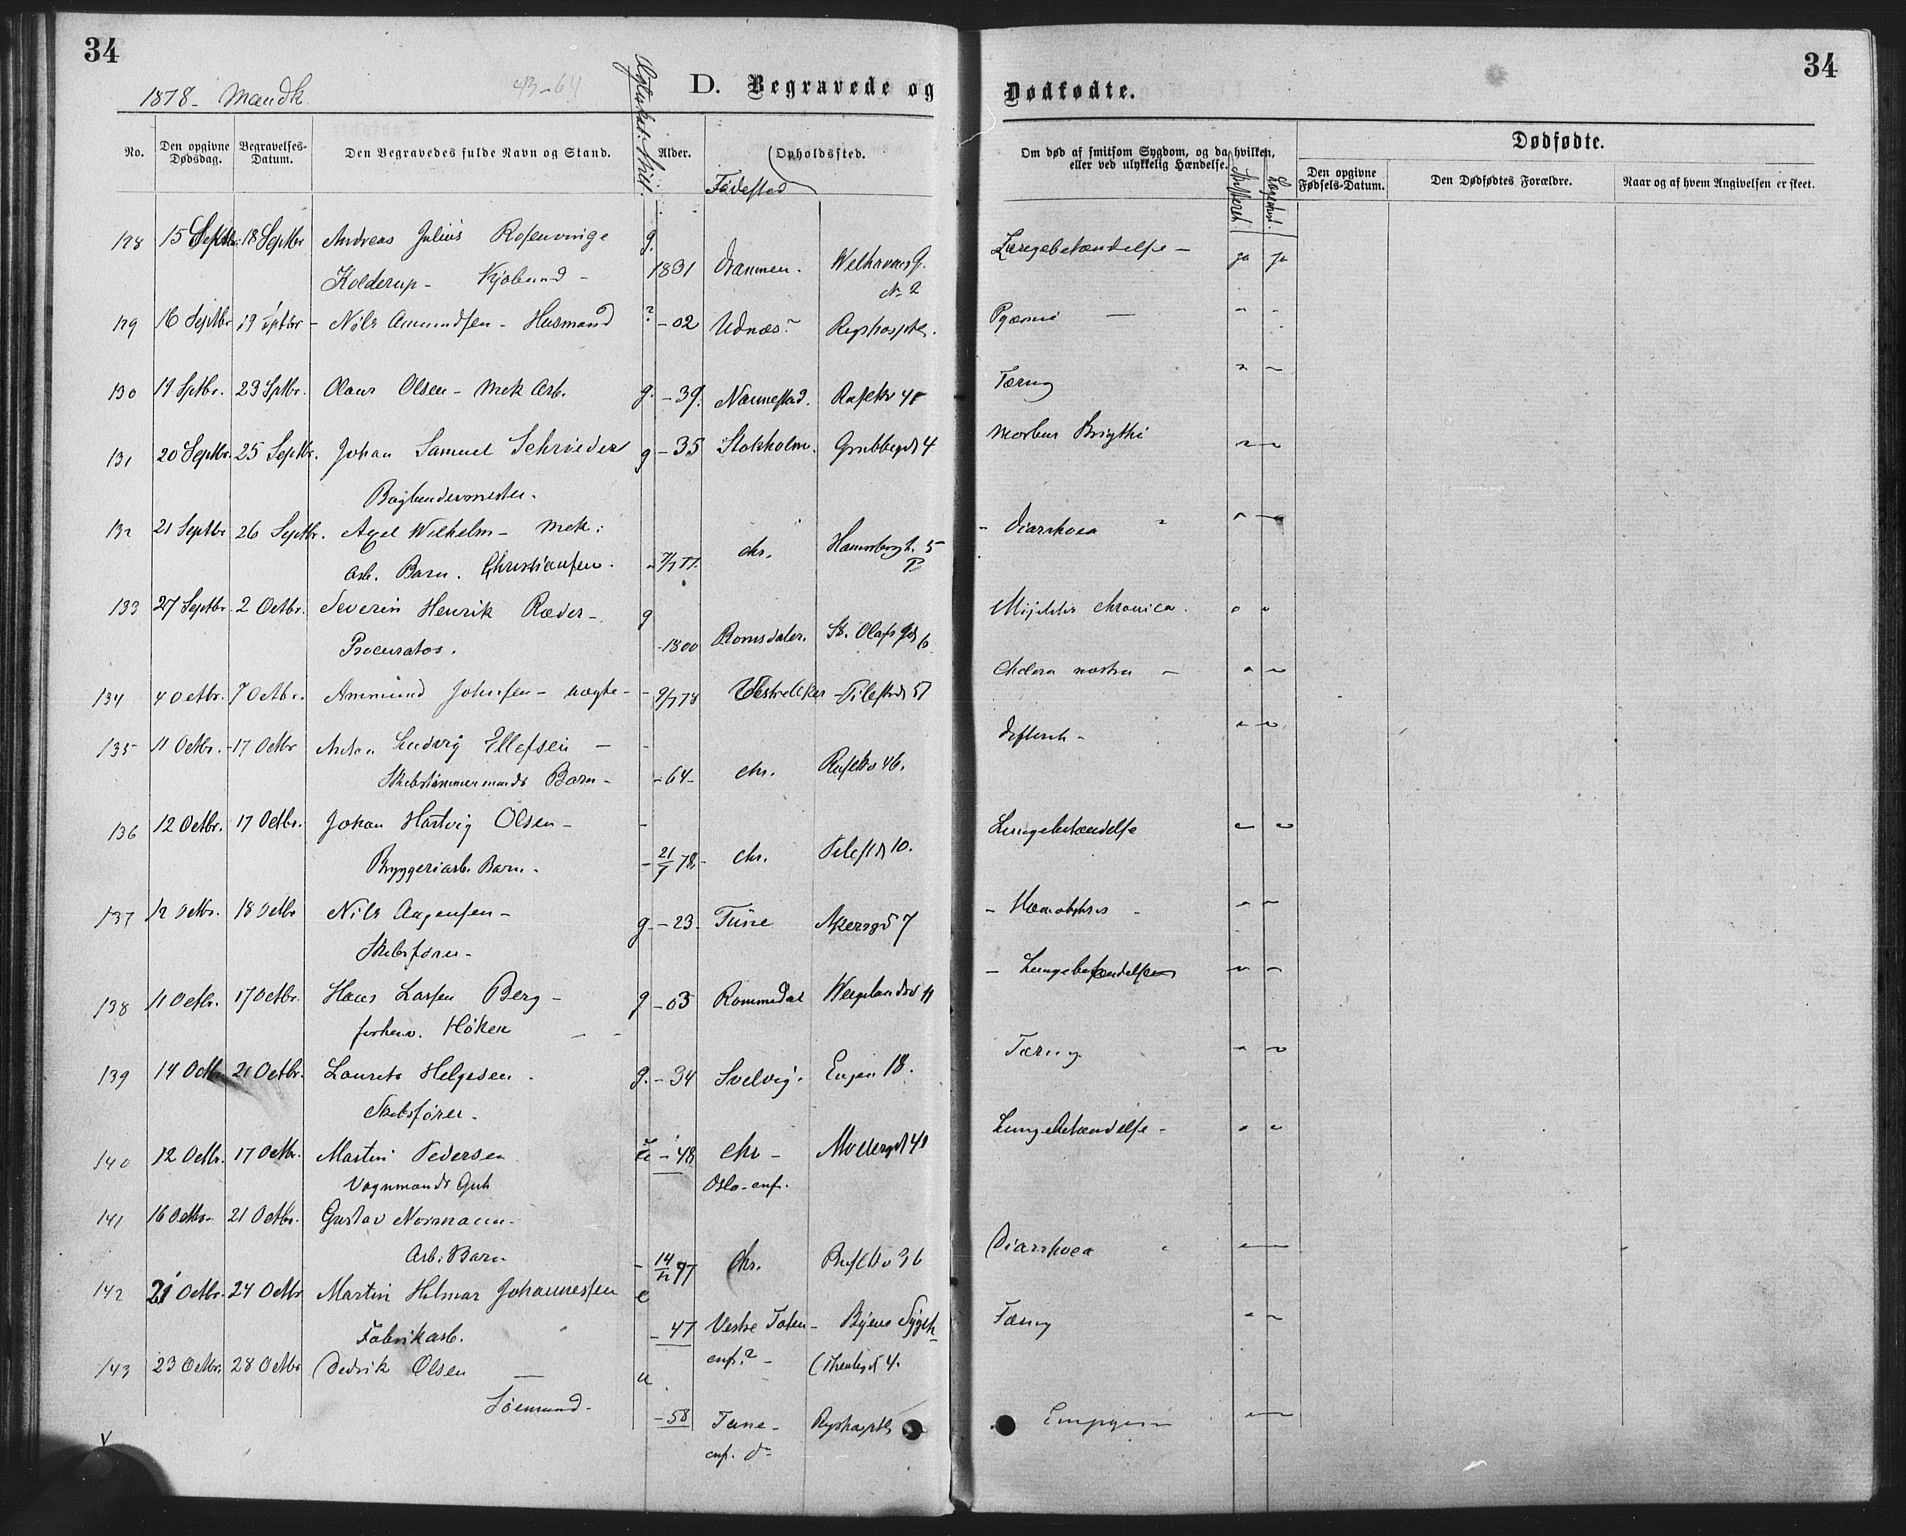 34
34
1878 - Mandk. 43-64
D. Begravede og Dødfødte.
No.
Den opgivne Dødsdag.
Begravelses-Datum.
Den Begravedes fulde Navn og Stand.
Alder.
Fødested
Opholdssted.
Om død af smitsom Sygdom, og da hvilken, eller ved ulykkelig Hændelse.
Dødfødte.
Den opgivne Fødsels-Datum.
Den Dødfødtes Forældre.
Naar og af hvem Angivelsen er skeet.
128 15 Septbr. 18 Septbr Andreas Julius Rosenvinge g. Lungebetændelse - ja ja
Kolderup - Kjøbmd - 1831 Drammen. Welhavens G.
No 2
129 16 Septbr 19 Sptbr - Nils Amundsen - Husmand ? - 02 Udnæs? Rigshospit. Pyæmi -
130 19 Sptbr. 23 Sptbr. Olaus Olsen - Mek Arb. g. - 39. Nannestad. Tæring
131 20 Septbr. 25 Septbr. Johan Samuel Schrøder g - 35 Stokholm. Grubbegd 4 Morbus Brigthi
Bogbindermester.
132 21 Septbr 26 Septbr. Axel Wilhelm - Mek: - Diarrhoea
Arb. Barn. Christiansen. - 7/7 77. Chr.
133 27 Septbr. 2 Octbr. Severin Henrik Ræder - g chronica.
Procurator. - 1800 Romsdalen. St. Olafs Gd 6
134 4 Octbr. 7 Octbr. Ammund Johnsen - uægte - 9/7 78 Vestre Aker - Pilestrd 57 Cholera nostra -
135 11 Octbr. - 17 Octbr Anton Ludvig Ellefsen - Difterit -
Skibstømmermands Barn - - 64 - Chr. 46.
136 12 Octbr. 17 Octbr. Johan Hartvig Olsen - Lungebetændelse
Bryggeriarb. Barn. - 21/9 78 - Chr. Pilestd 10.
137 12 Octbr. 18 Octbr Nils Aagensen - g. - 23 - Tune Akersgd 7
Skibsfører -
138 11 Octbr. 17 Octbr. Hans Larsen Berg - g - 03 Rommedal Wergelandsv 11 - Lungebetændelse
forhenv. Høker
139 14 Octbr. 21 Octbr. Laurits Helgesen. g. - 34 Svelvig. Engen 18. Tæring
Skibsfører -
140 12 Octbr. 17 Octbr. Martin Pedersen - 48 Chr - Møllergd 41 Lungebetændelse -
Vognmands Gut Oslo - cnf.
141 16 Octbr. 21 Octbr. Gustav Normann -
Arb. Barn - 14/12 77 Chr. 36 Diarrhoea
142 21 Octbr. 24 Octbr Martin Hilmar Johannessen e
Fabrikarb. - 47 Vestre Toten - Byens Sygeh Tæring
cnf. ? -
143 23 Octbr. 28 Octbr Didrik Olsen - u
Sømand - - 58 Tune - Rigshospit.
cnf. do